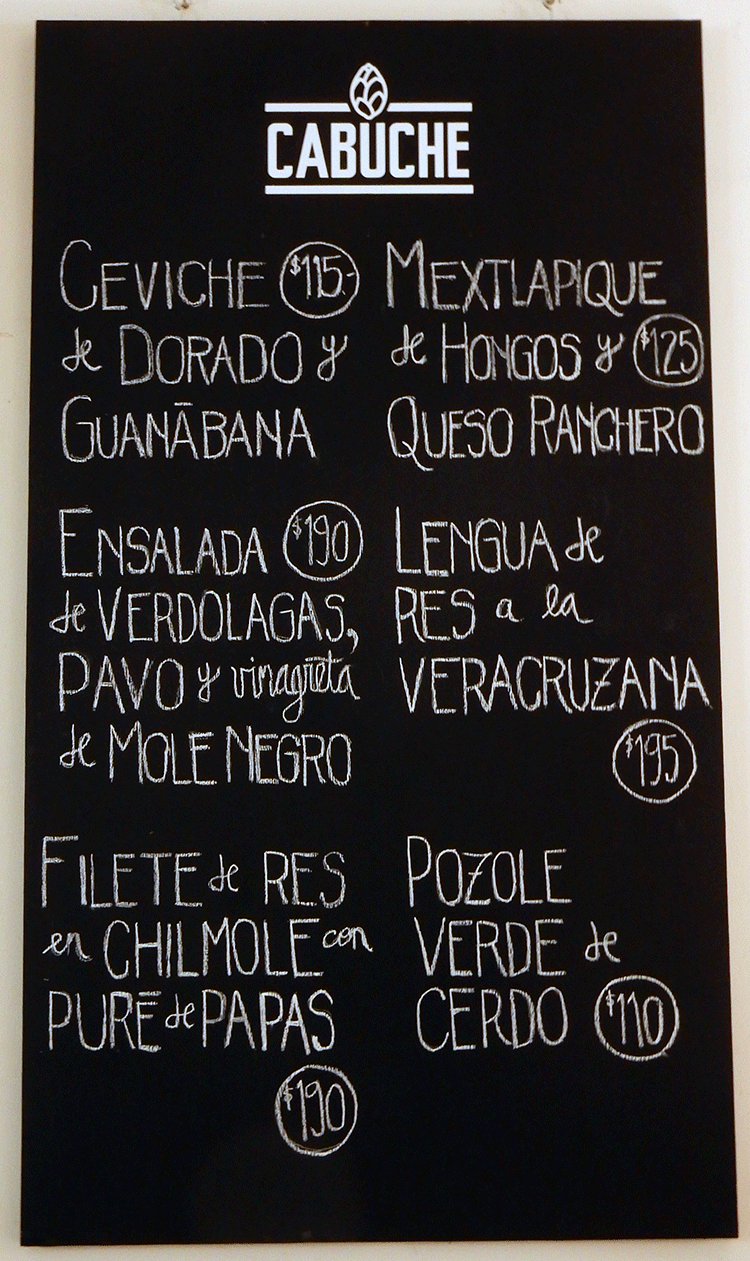 CABUCHE
CEVICHE $115-
de DORADO y
GUANĀBANA
ENSALADA $190
de VERDOLAGAS,
PAVO y vinagreta
de MOLE NEGRO
FILETE de RES
en CHILMOLE con
PURĒ de PAPAS
$190
MEXTLAPIQUE
de HONGOS y $125
QUESO RANCHERO
LENGUA de
RES a la
VERACRUZANA
$195
POZOLE
VERDE de
CERDO $110